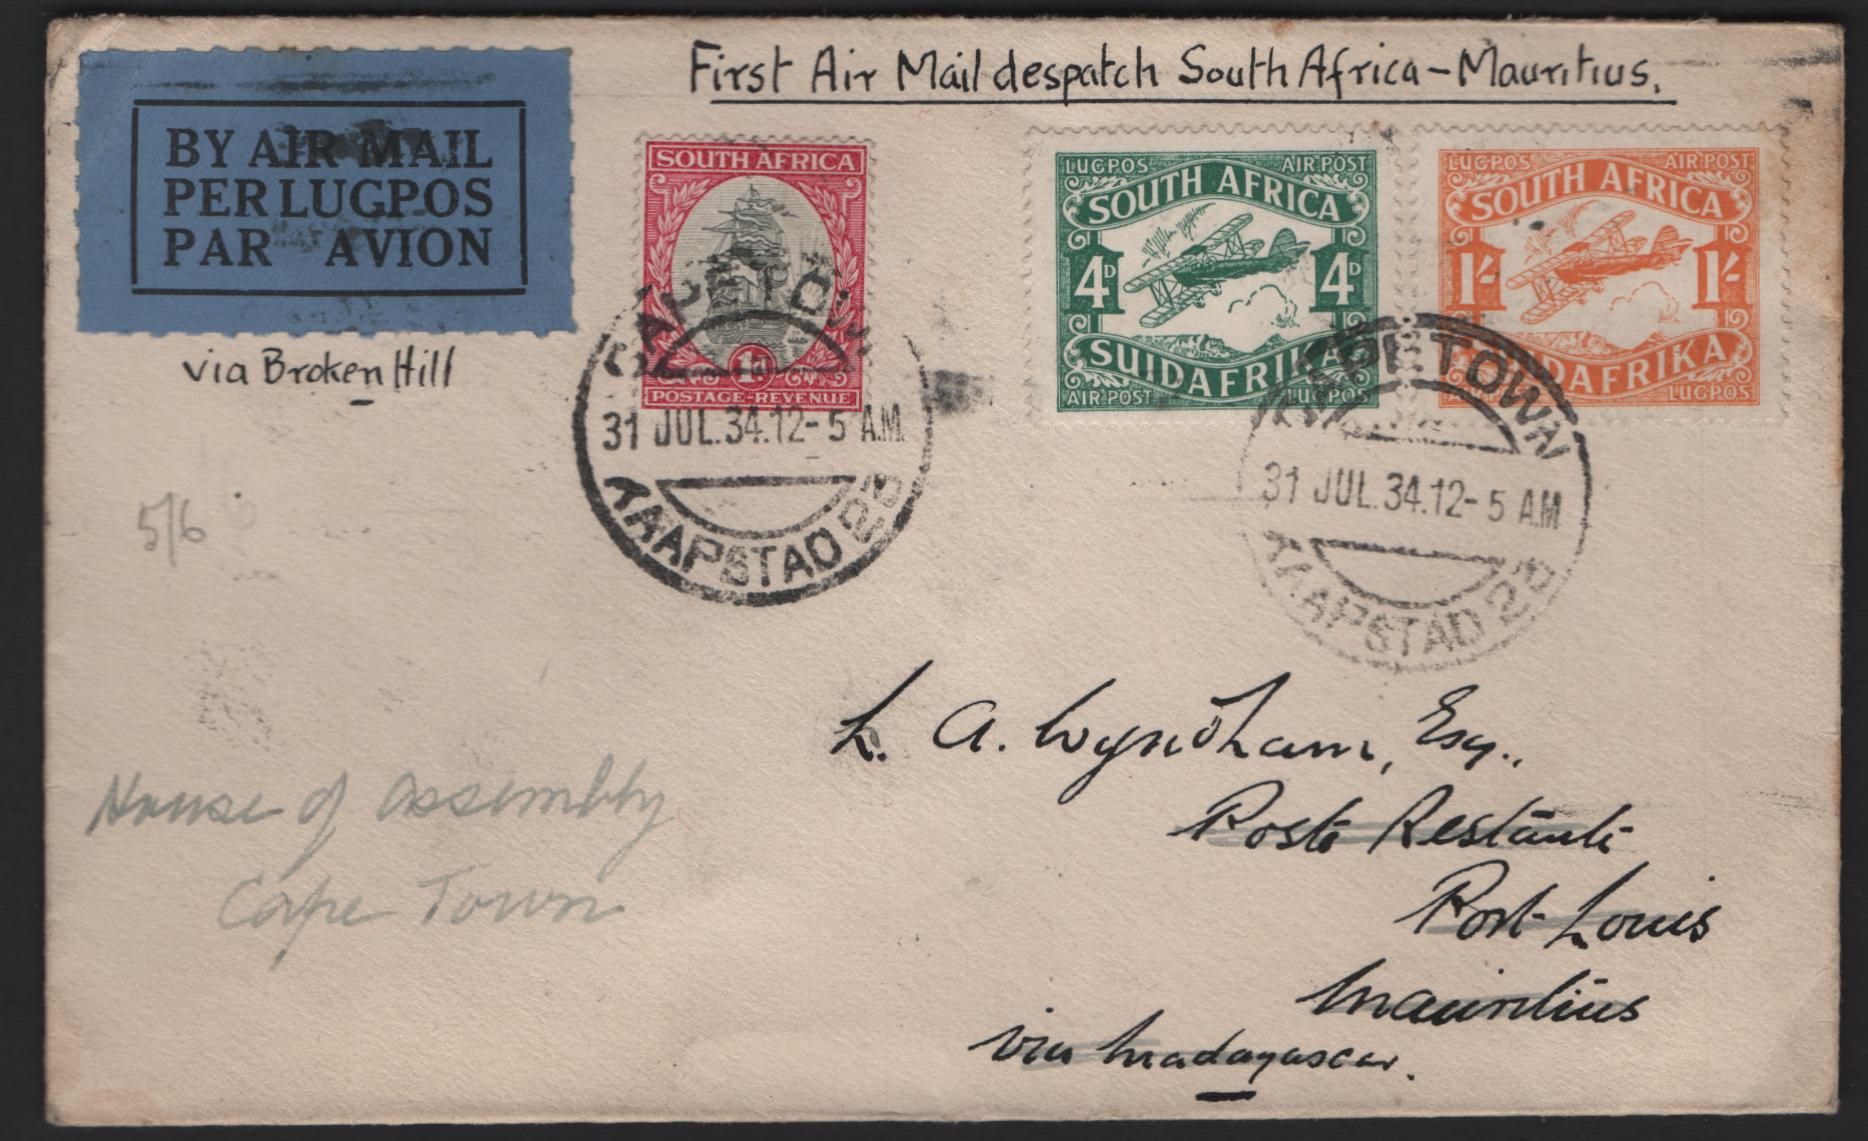 First Air Mail despatch South Africa – Mauritius.
BY AIR MAIL
PER LUGPOS
PAR AVION
via Broken Hill
SOUTH AFRICA
1D
POSTAGE-REVENUE
LUGPOS AIR POST
SOUTH AFRICA
4D 4D
SUIDAFRIKA
AIR POST LUGPOS
LUGPOS AIR POST
SOUTH AFRICA
1/- 1/-
SUIDAFRIKA
AIR POST LUGPOS
CAPE TOWN
31 JUL.34.12-5 A.M.
KAAPSTAD
CAPE TOWN
31 JUL.34.12-5 AM
KAAPSTAD
5/6
L. A. Wyndham, Esq.,
Poste Restante
Port Louis
Mauritius
via Madagascar.
House of Assembly
Cape Town